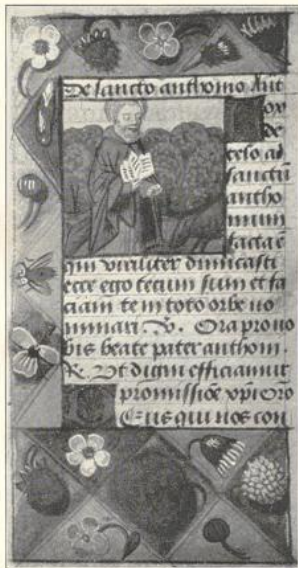 De sancto anthonio Ant
Vox
de
celo ad
sanctū
antho
nium
facta ē
qui viriliter dimicasti
ecce ego tecum sum et fa
ciam te in toto orbe no
minari. V. Ora pro no
bis beate pater anthoni.
R. Ut digni efficiamur
promissiōe xp̄i Oro
Deus qui nos con